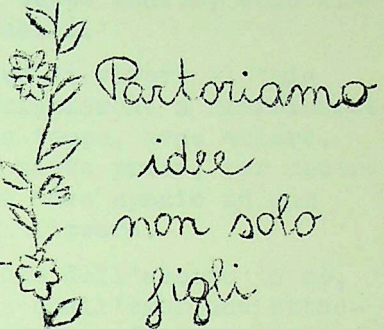 Partoriamo
idee
non solo
figli